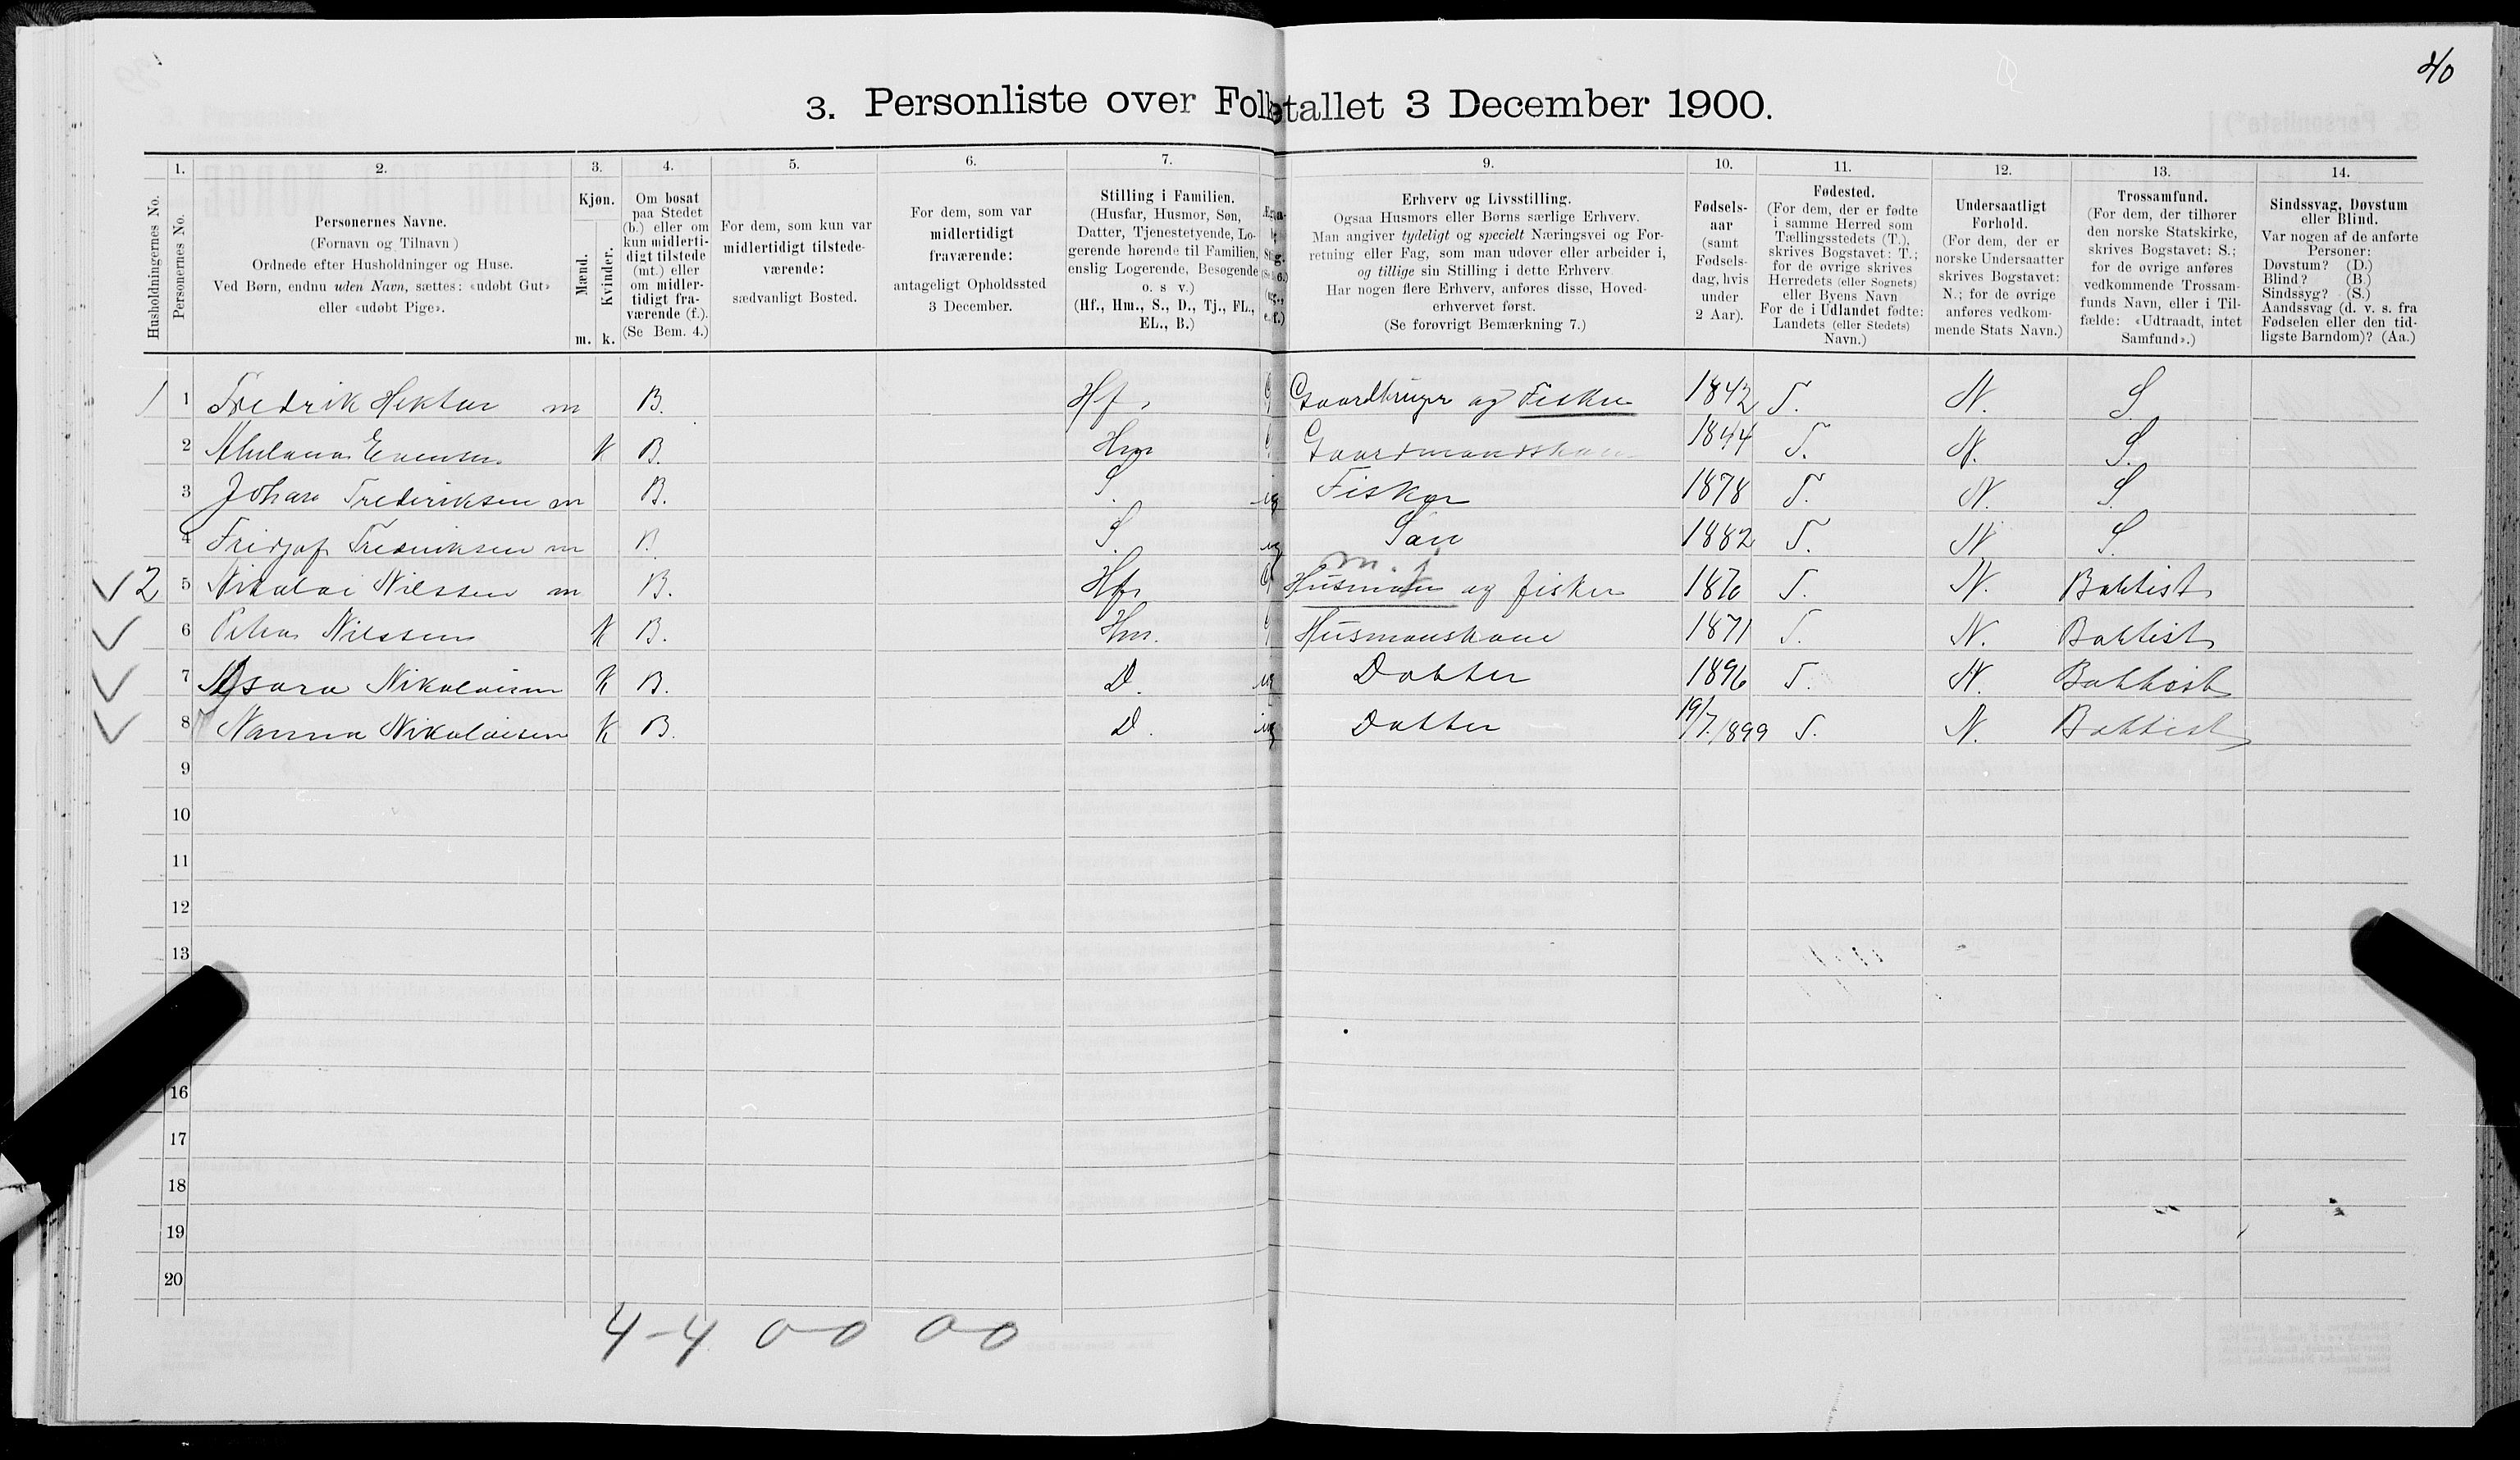 40
3. Personliste over Folketallet 3 December 1900.
1. 2. 3. 4. 5. 6. 7. 9. 10. 11. 12. 13. 14.
Husholdningernes No.
Personernes No.
Personernes Navne.
(Fornavn og Tilnavn)
Ordnede efter Husholdninger og Huse.
Ved Børn, endnu uden Navn, sættes: «udøbt Gut»
eller «udøbt Pige».
Kjøn.
Mænd.
Kvinder.
m. k.
Om bosat
paa Stedet
(b.) eller om
kun midlerti-
digt tilstede
(mt.) eller
om midler-
tidigt fra-
værende (f.).
(Se Bem. 4.)
For dem, som kun var
midlertidigt tilstede-
værende:
sædvanligt Bosted.
For dem, som var
midlertidigt
fraværende:
antageligt Opholdssted
3 December.
Stilling i Familien.
(Husfar, Husmor, Søn,
Datter, Tjenestetyende, Lo-
gerende hørende til Familien,
enslig Logerende, Besøgende
o. s v.)
(Hf., Hm., S., D., Tj., FL.,
EL., B.)
Erhverv og Livsstilling.
Ogsaa Husmors eller Børns særlige Erhverv.
Man angiver tydeligt og specielt Næringsvei og For-
retning eller Fag, som man udøver eller arbeider i,
og tillige sin Stilling i dette Erhverv.
Har nogen flere Erhverv, anføres disse, Hoved-
erhvervet først.
(Se forøvrigt Bemærkning 7.)
Fødsels-
aar
(samt
Fødsels-
dag, hvis
under
2 Aar).
Fødested.
(For dem, der er fødte
i samme Herred som
Tællingsstedets (T.),
skrives Bogstavet: T.;
for de øvrige skrives
Herredets (eller Sognets)
eller Byens Navn
For de i Udlandet fødte:
Landets (eller Stedets)
Navn.)
Undersaatligt
Forhold.
(For dem, der er
norske Undersaatter
skrives Bogstavet:
N.; for de øvrige
anføres vedkom-
mende Stats Navn.)
Trossamfund.
(For dem, der tilhører
den norske Statskirke,
skrives Bogstavet: S.;
for de øvrige anføres
vedkommende Trossam-
funds Navn, eller i Til-
fælde: «Udtraadt, intet
Samfund».)
Sindssvag, Døvstum
eller Blind.
Var nogen af de anførte
Personer:
Døvstum? (D.)
Blind? (B.)
Sindssyg? (S.)
Aandssvag (d. v. s. fra
Fødselen eller den tid-
ligste Barndom)? (Aa.)
1 1 Fredrik Hektor m B. Hf. G Gaardbruger og Fisker 1842 T. N. S
2 Evensen K B. Hm G Gaardmandskone 1844 T. N. S.
3 Johan Frederiksen m B. S. ug Fisker 1878 T. N. S
4 Fridjof Frederiksen m B. S. ug Søn 1882 T. N S.
m. j
2 5 Nikolai Nilssen m B. Hf. G Husmann og fisker 1870 T. N. Babtist
6 Petra Nilssen K B. Hm. G Husmanskone 1871 T. N. Babtist
7 Nikolaisen K B. D. ug Dotter 1896 T. N. Babtist
8 Nanna Nikolaisen K B. D. ug Dotter 19/7 1899 T. N. Babtist
9
10
11
12
13
16
17
18
19
20
4-4 0-0 0-0